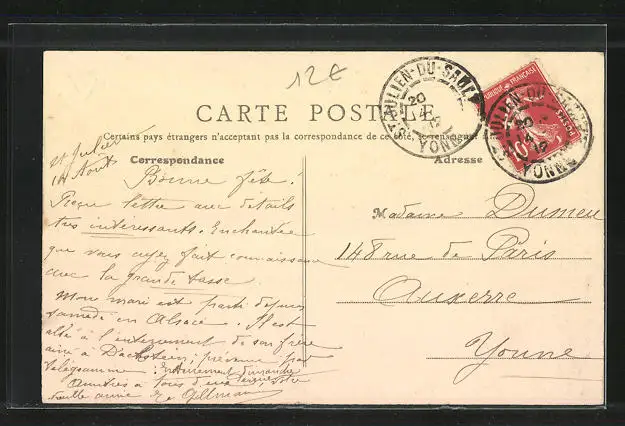 12€
CARTE POSTALE
Certains pays étrangers n'acceptant pas la correspondance de ce côté, se renseigner
Correspondance
Adresse
St Julien
14 Août
Bonne fête !
Reçu lettre avec détails
très intéressants. Enchantée
que vous ayez fait connaissance
avec la grande tasse.
Mon mari est parti depuis
samedi en Alsace. Il est
allé à l'enterrement de son frère
aîné à Dachstein; prévenu par
télégramme : Enterrement dimanche
Amitiés à tous
Madame Dumeu
148 rue de Paris
Auxerre
Yonne
ST-JULIEN-DU-SAULT
20
YONNE
ST-JULIEN-DU-SAULT
20
12
YONNE
FRANÇAISE
POSTES
10